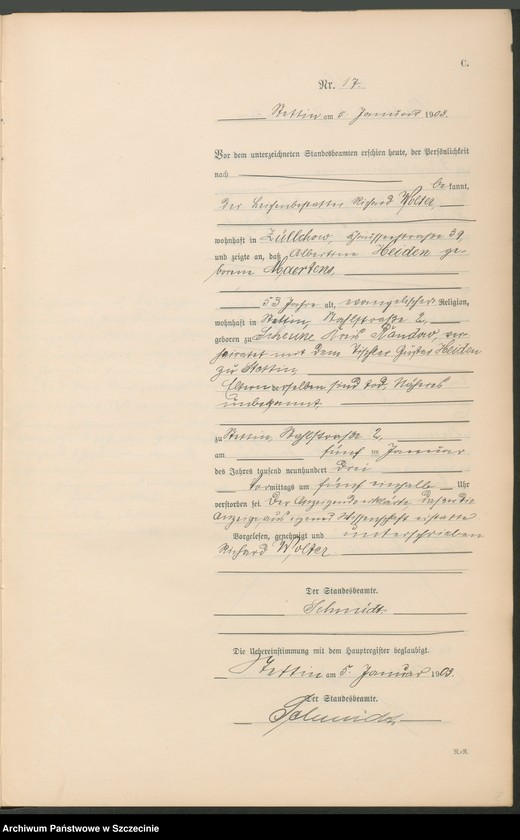 C.
Nr. 17.
Stettin am 5. Januar 1903.
Vor dem unterzeichneten Standesbeamten erschien heute, der Persönlichkeit
nach
be kannt,
der Leichenbestatter Richard Wolter,
wohnhaft in Züllchow, Chausseestraße 39,
und zeigte an, daß Albertine Heiden ge-
borene Maertens,
53 Jahre alt, evangelischer Religion,
wohnhaft in Stettin, Stahlstraße 2,
geboren zu Scheune Kreis Randow, ver-
heiratet mit dem Tischler Gustav Heiden
zu Stettin,
Eltern derselben sind tod, Näheres
unbekannt,
zu Stettin, Stahlstraße 2,
am fünf ten Januar
des Jahres tausend neunhundert drei
Vor mittags um fünf einhalb Uhr
verstorben sei. Der Anzeigende erklärte, daß er die
Anzeige aus eigener Wissenschaft erstatte
Vorgelesen, genehmigt und unterschrieben
Richard Wolter
Der Standesbeamte.
Schmidt.
Die Uebereinstimmung mit dem Hauptregister beglaubigt.
Stettin am 5. Januar 1903.
Der Standesbeamte.
Schmidt.
Archiwum Państwowe w Szczecinie